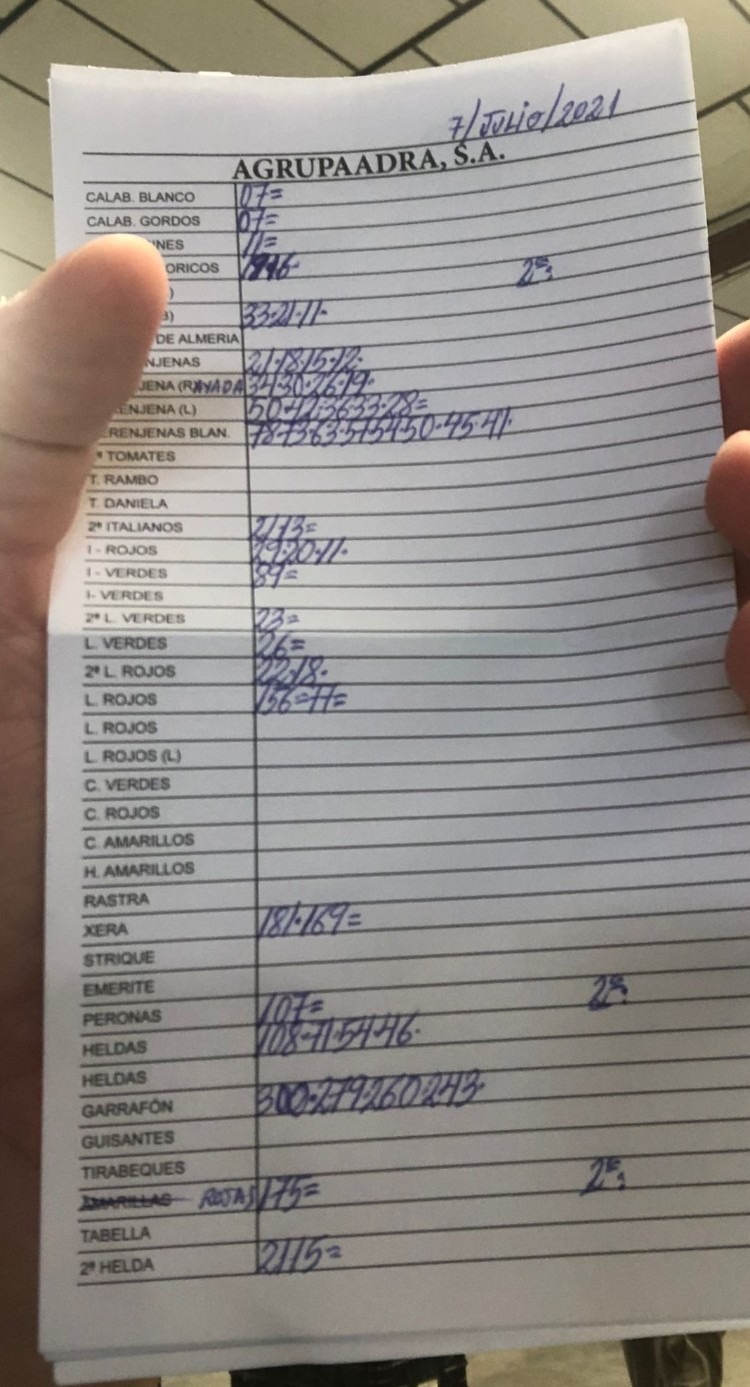 7/JULIO/2021
AGRUPAADRA, S.A.
CALAB. BLANCO 07=
CALAB. GORDOS 07=
INES 11=
ORICOS 2ªs
)
B) 33·21·11·
DE ALMERIA
NJENAS 21·18·15·12·
JENA (RAYADA 34·30·26·19·
ENJENA (L) 50·42·3633·28=
ERENJENAS BLAN. 78·73·63·575450·45·41·
ª TOMATES
T. RAMBO
T. DANIELA
2ª ITALIANOS 21·13=
I - ROJOS 29·20·11·
I - VERDES 89=
I- VERDES
2ª L. VERDES 23=
L. VERDES 26=
2ª L. ROJOS 22·18·
L. ROJOS 156=77=
L. ROJOS
L. ROJOS (L)
C. VERDES
C. ROJOS
C. AMARILLOS
H. AMARILLOS
RASTRA
XERA 181·169=
STRIQUE
EMERITE
PERONAS 107= 2ªs
HELDAS 108·71·54·46·
HELDAS
GARRAFÓN 300·279260·243·
GUISANTES
TIRABEQUES
AMARILLAS ROJAS 175= 2ªs
TABELLA
2ª HELDA 2115=